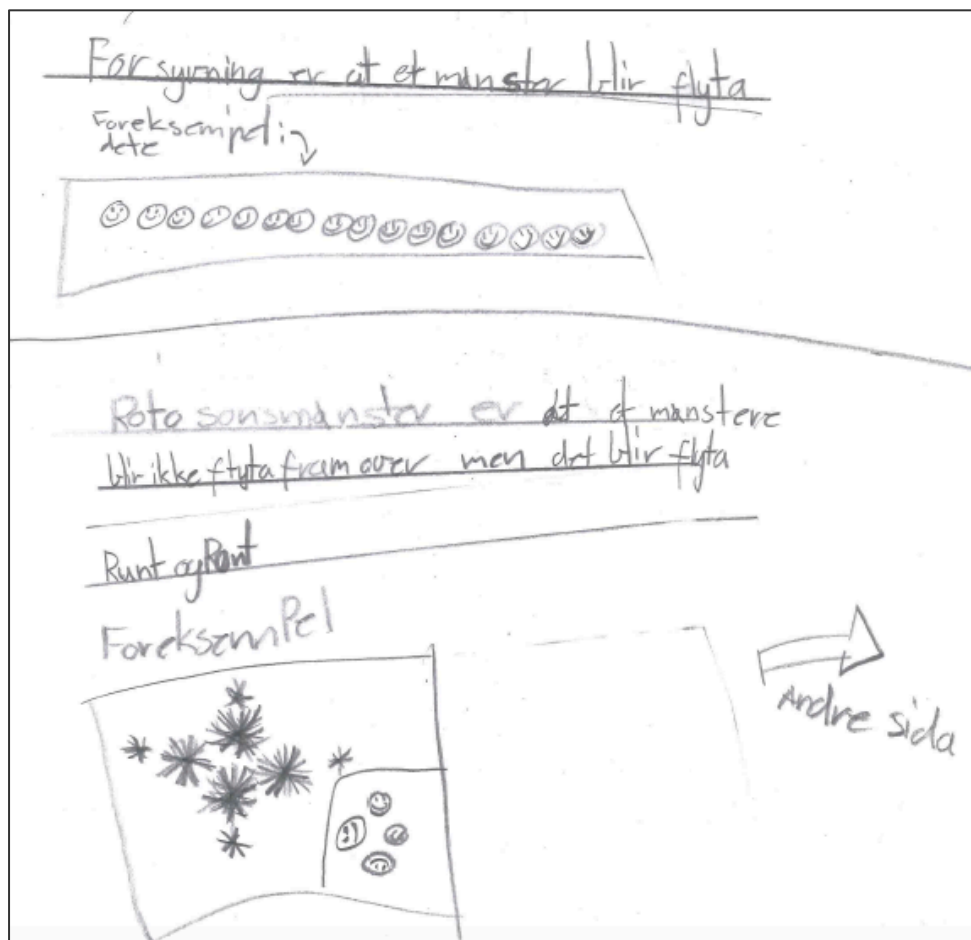 Forsyvning er at et mønster blir flyta
Foreksempel:
dete
Rotasonsmønster er at et mønstere
blir ikke flyta fram over men det blir flyta
Runt og Runt
Foreksempel
Andre sida